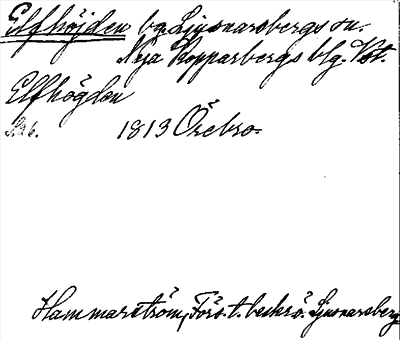 Elfhöjden by, Ljusnarsbergs sn.
Nya Kopparbergs blg. Vst.
Elfhögden
1813 Örebro.
Hammarström, Förs. t. beskr. ö. Ljusnarsberg